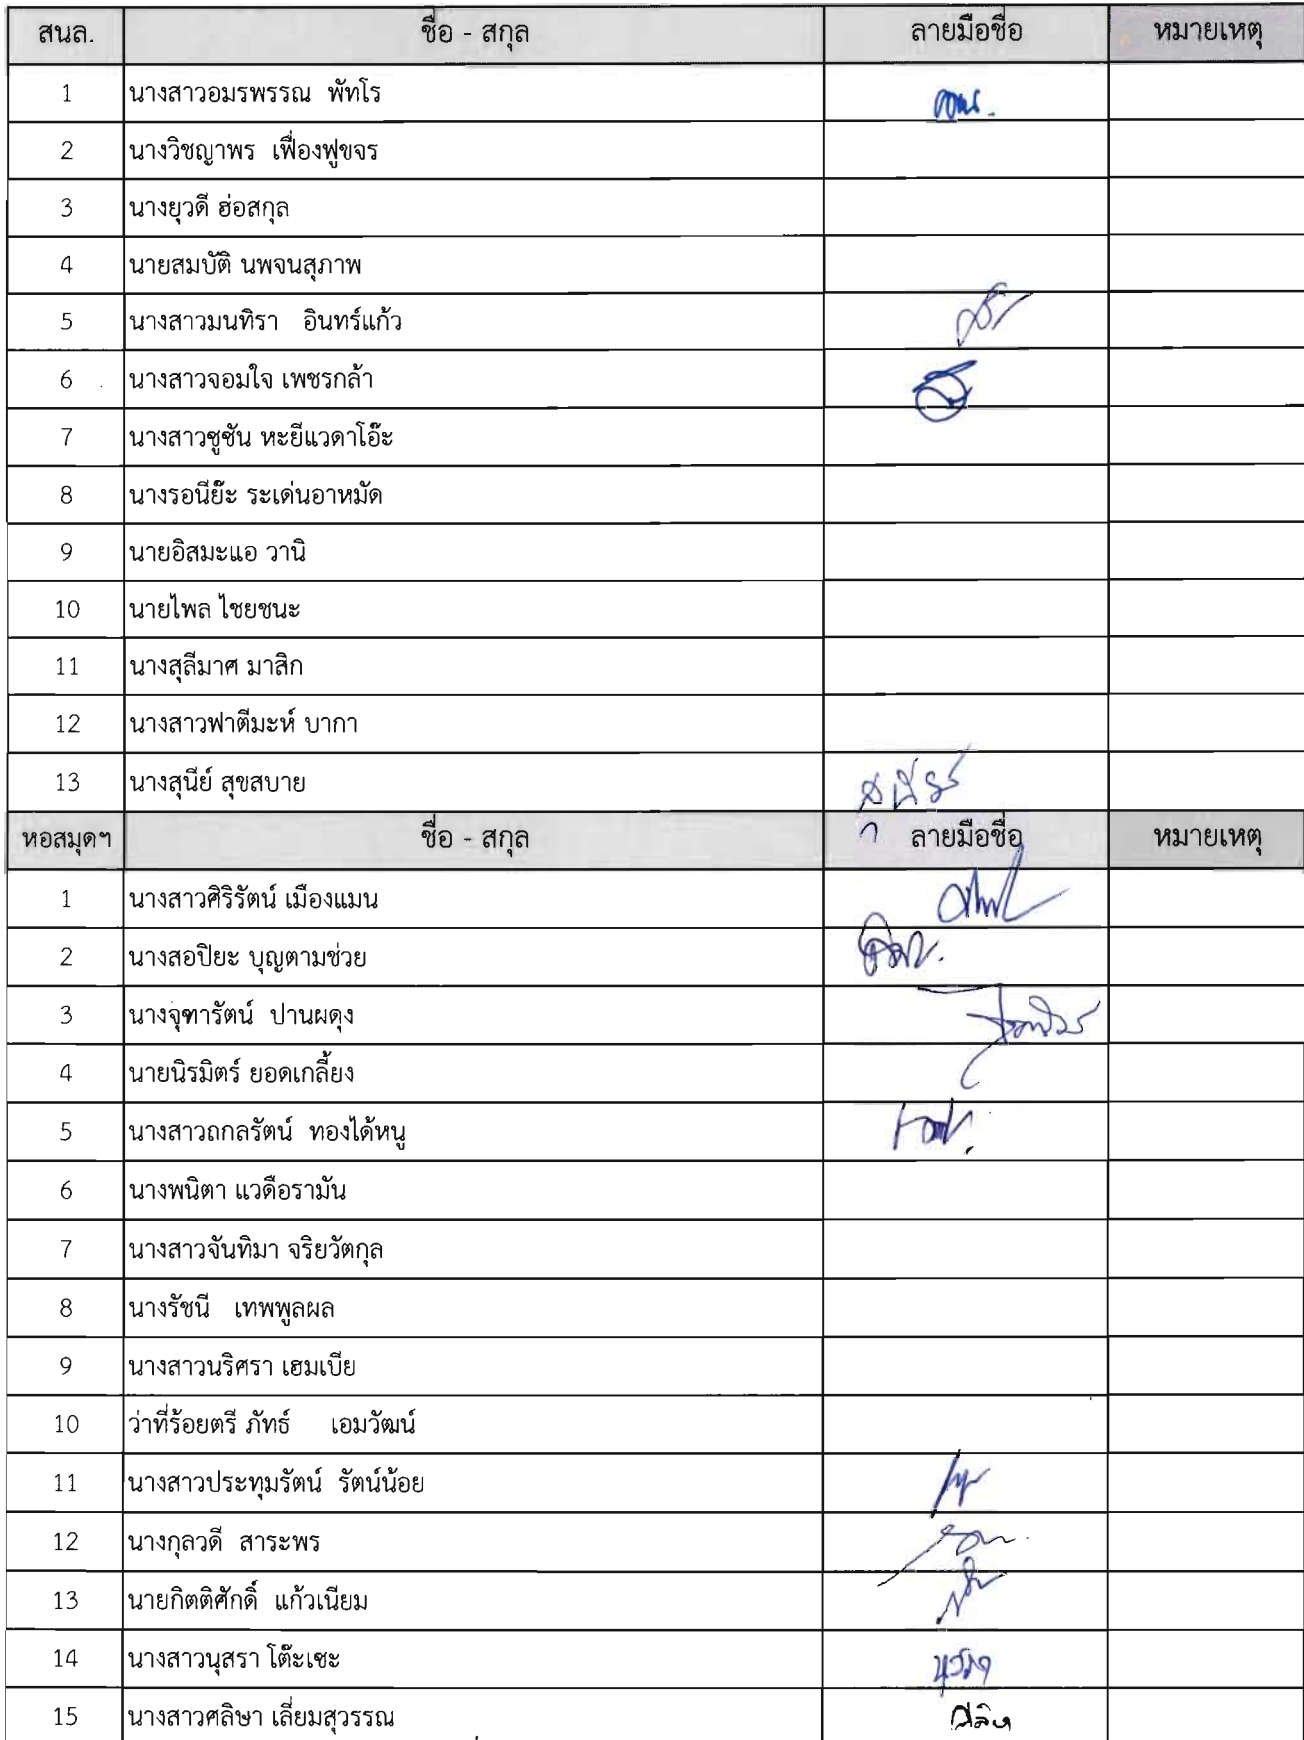 สนล. ชื่อ - สกุล ลายมือชื่อ หมายเหตุ
1 นางสาวอมรพรรณ พัทโร
2 นางวิชญาพร เฟื่องฟูขจร
3 นางยุวดี ฮ่อสกุล
4 นายสมบัติ นพจนสุภาพ
5 นางสาวมนทิรา อินทร์แก้ว
6 นางสาวจอมใจ เพชรกล้า
7 นางสาวซูซัน หะยีแวดาโอ๊ะ
8 นางรอนีย๊ะ ระเด่นอาหมัด
9 นายอิสมะแอ วานิ
10 นายไพล ไชยชนะ
11 นางสุลีมาศ มาสิก
12 นางสาวฟาตีมะห์ บากา
13 นางสุนีย์ สุขสบาย สุนีย์
หอสมุดฯ ชื่อ - สกุล ลายมือชื่อ หมายเหตุ
1 นางสาวศิริรัตน์ เมืองแมน
2 นางสอปิยะ บุญตามช่วย
3 นางจุฑารัตน์ ปานผดุง
4 นายนิรมิตร์ ยอดเกลี้ยง
5 นางสาวถกลรัตน์ ทองได้หนู
6 นางพนิตา แวดือรามัน
7 นางสาวจันทิมา จริยวัตกุล
8 นางรัชนี เทพพูลผล
9 นางสาวนริศรา เฮมเบีย
10 ว่าที่ร้อยตรี ภัทธ์ เอมวัฒน์
11 นางสาวประทุมรัตน์ รัตน์น้อย
12 นางกุลวดี สาระพร
13 นายกิตติศักดิ์ แก้วเนียม
14 นางสาวนุสรา โต๊ะเซะ
15 นางสาวศลิษา เลี่ยมสุวรรณ